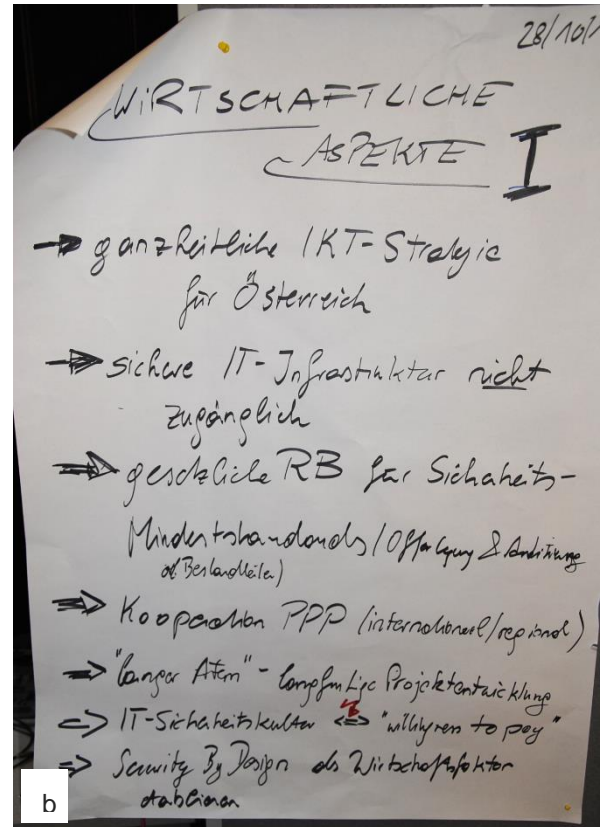 28/10/1
WIRTSCHAFTLICHE
ASPEKTE I
→ ganzheitliche IKT-Strategie
für Österreich
→ sichere IT-Infrastruktur nicht
zugänglich
⇒ gesetzliche RB für Sicherheits-
Mindeststandards / Offenlegung & Auditierung
d. Bestandteile)
⇒ Kooperation PPP (international/regional)
⇒ "langer Atem" - langfristige Projektentwicklung
⇒ IT-Sicherheitskultur <=> "willigness to pay"
⇒ Security By Design als Wirtschaftsfaktor
etablieren
b